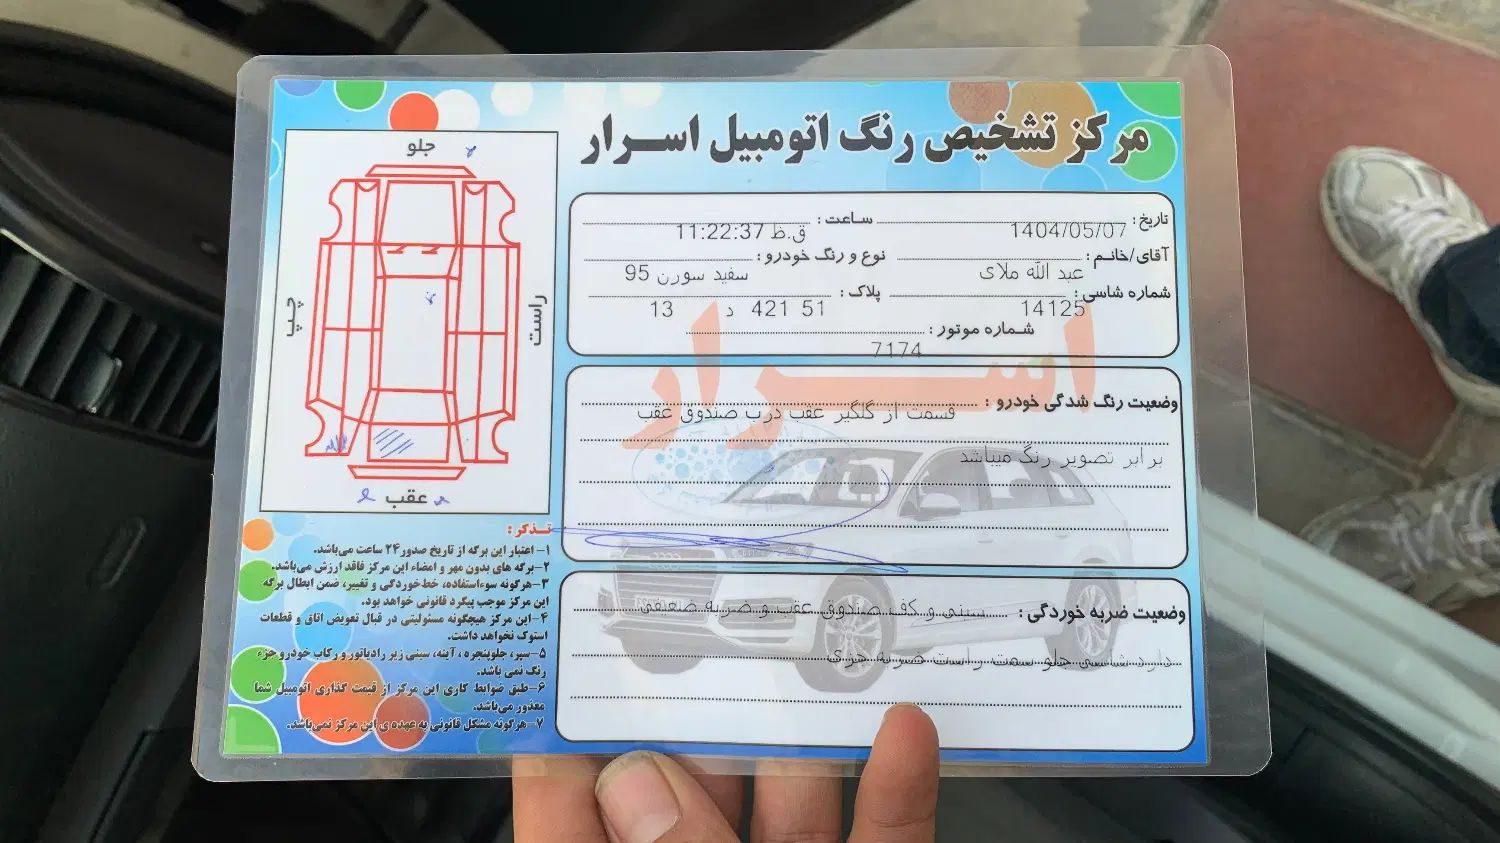 مرکز تشخیص رنگ اتومبیل اسرار
تاریخ: 1404/05/07 ساعت: 11:22:37 ق.ظ
آقای/خانم: عبد الله ملای نوع و رنگ خودرو: سفید سورن 95
شماره شاسی: 14125 پلاک: 51 421 د 13
شماره موتور: 7174
اسرار
وضعیت رنگ شدگی خودرو: قسمت از گلگیر عقب درب صندوق عقب
برابر تصویر رنگ میباشد
وضعیت ضربه خوردگی: سینی و کف صندوق عقب و ضربه ضعیفی
دارد شاسی جلو سمت راست ضربه جزی
جلو
چپ
راست
عقب
تذکر:
۱- اعتبار این برگه از تاریخ صدور ۲۴ ساعت می‌باشد.
۲- برگه های بدون مهر و امضاء این مرکز فاقد ارزش می‌باشد.
۳- هرگونه سوءاستفاده، خط‌خوردگی و تغییر، ضمن ابطال برگه
این مرکز موجب پیگرد قانونی خواهد بود.
۴- این مرکز هیچگونه مسئولیتی در قبال تعویض اتاق و قطعات
استوک نخواهد داشت.
۵- سپر، جلوپنجره، آینه، سینی زیر رادیاتور و رکاب خودرو جزء
رنگ نمی باشد.
۶- طبق ضوابط کاری این مرکز از قیمت گذاری اتومبیل شما
معذور می‌باشد.
۷- هرگونه مشکل قانونی به عهده ی این مرکز نمی‌باشد.